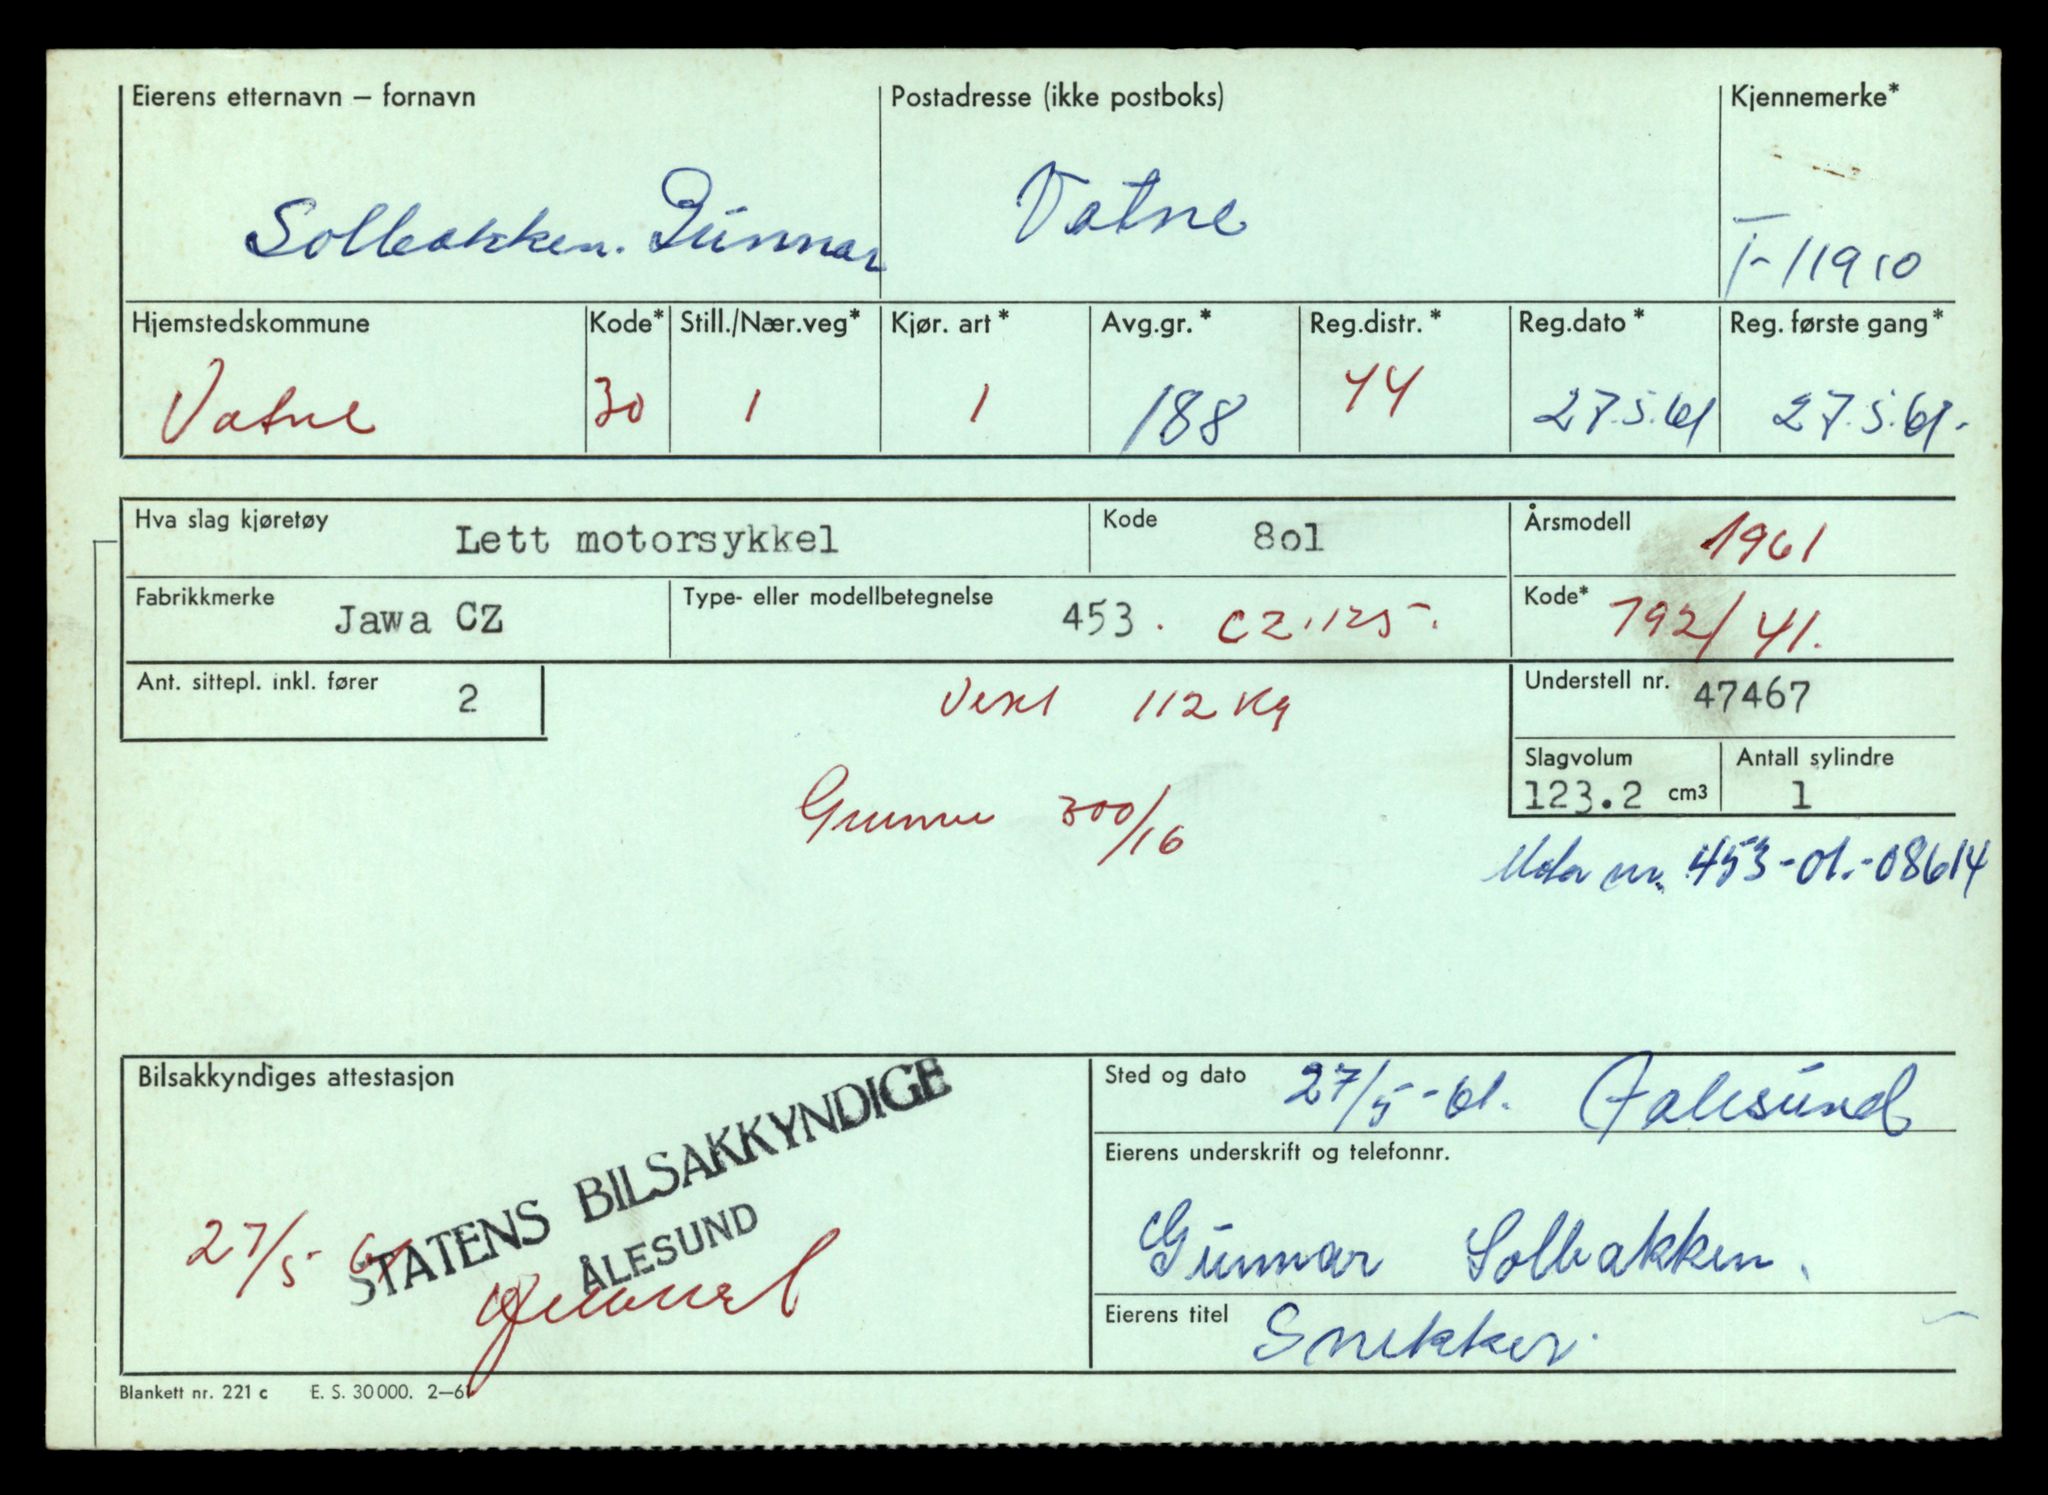 Eierens etternavn – fornavn
Postadresse (ikke postboks)
Kjennemerke*
Solbakken. Gunnar
Vatne
T-11910
Hjemstedskommune
Kode*
Still./Nær.veg*
Kjør. art*
Avg.gr.*
Reg.distr.*
Reg.dato*
Reg. første gang*
Vatne
30
1
1
188
14
27.5.61
27.5.61.
Hva slag kjøretøy
Lett motorsykkel
Kode
8o1
Årsmodell
1961
Fabrikkmerke
Jawa CZ
Type- eller modellbetegnelse
453. CZ.125.
Kode*
792/41.
Ant. sittepl. inkl. fører
2
Vekt 112 Kg
Understell nr.
47467
Slagvolum
123.2 cm3
Antall sylindre
1
Gummi 300/16
Motor nr. 453-01.-08614
Bilsakkyndiges attestasjon
STATENS BILSAKKYNDIGE
ÅLESUND
27/5-61
Sted og dato
27/5-61. Aalesund
Eierens underskrift og telefonnr.
Gunnar Solbakken.
Eierens titel
Snekker.
Blankett nr. 221 c E. S. 30 000. 2—61